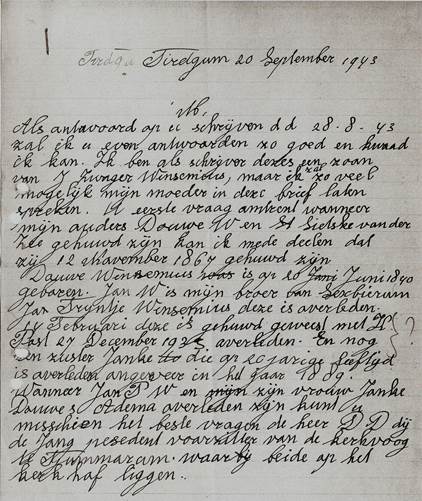 Tirdgum 20 September 1943
M,
Als antwoord op u schrijven d d 28-8-43
zal ik u even antwoorden zo goed en kwaad
ik kan. Ik ben als schrijver dezes een zoan
van J Zwager Winsemius, maar ik zal zo veel
mogelijk mijn moeder in deze brief laten
spreken. U eerste vraag amtrent wanneer
mijn auders Douwe W en St Sietske van der
Zee gehuwd zijn kan ik mede deelen dat
zij 12 november 1867 gehuwd zijn
Dauwe Winsemius is ap 20 Juni 1840
geboren. Jan W is mijn broer van Sexbierum
Jan Tryntje Winsemius deze is averleden
14 Februari deze is gehuwd geweest met H
Post 27 December averleden. En nog
een zuster Janke die ap 20 jarige leeftijd
is averleden angeveer in het jaar 1889.
Wanneer Jan P W en zijn vrouw Janke
Dauwes Adema averleden zijn kunt u
misschien het beste vragen de heer D D dij
de Jang voorzitter van de kerkvoog
te waar bij beide ap het
kerk haf liggen.